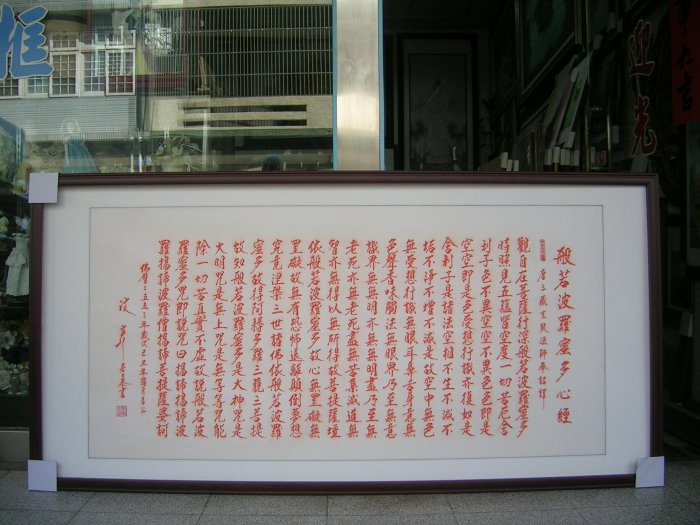 框
迎光
般若波羅蜜多心經
唐三藏玄奘法師奉詔譯
觀自在菩薩行深般若波羅蜜多
時照見五蘊皆空度一切苦厄舍
利子色不異空空不異色色即是
空空即是色受想行識亦復如是
舍利子是諸法空相不生不滅不
垢不淨不增不減是故空中無色
無受想行識無眼耳鼻舌身意無
色聲香味觸法無眼界乃至無意
識界無無明亦無無明盡乃至無
老死亦無老死盡無苦集滅道無
智亦無得以無所得故菩提薩埵
依般若波羅蜜多故心無罣礙無
罣礙故無有恐怖遠離顛倒夢想
究竟涅槃三世諸佛依般若波羅
蜜多故得阿耨多羅三藐三菩提
故知般若波羅蜜多是大神咒是
大明咒是無上咒是無等等咒能
除一切苦真實不虛故說般若波
羅蜜多咒即說咒曰揭諦揭諦波
羅揭諦波羅僧揭諦菩提薩婆訶
佛曆二五五三年歲次己丑年